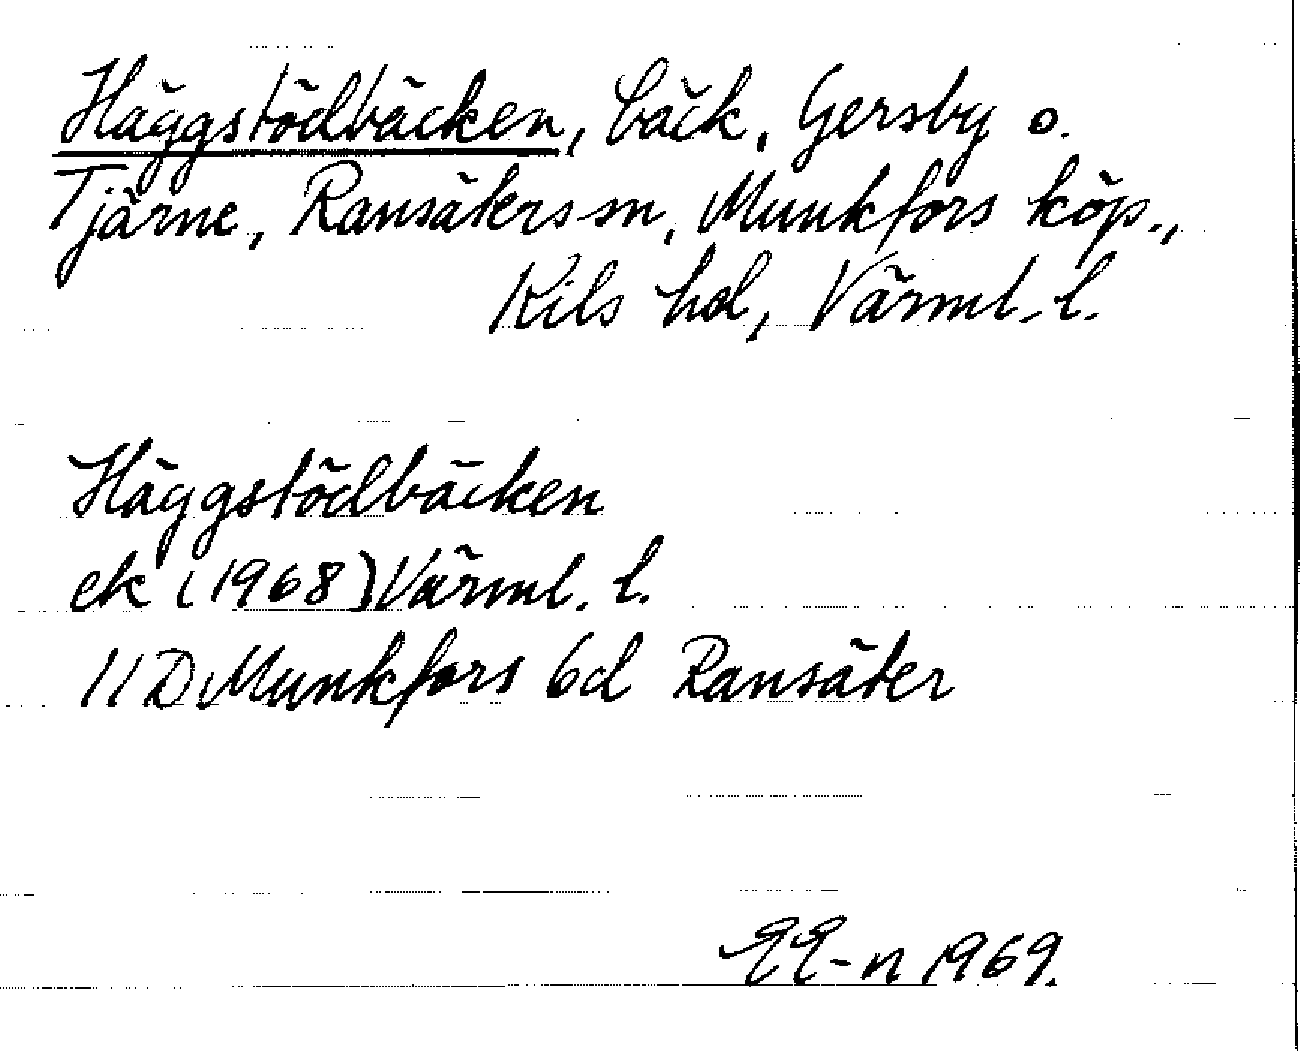 Häggstödbäcken, bäck, Gersby o.
Tjärne, Ransäters sn, Munkfors köp.,
Kils hd, Värml. l.
Häggstödbäcken
ek (1968) Värml. l.
11D Munkfors 6d Ransäter
EE-n 1969.